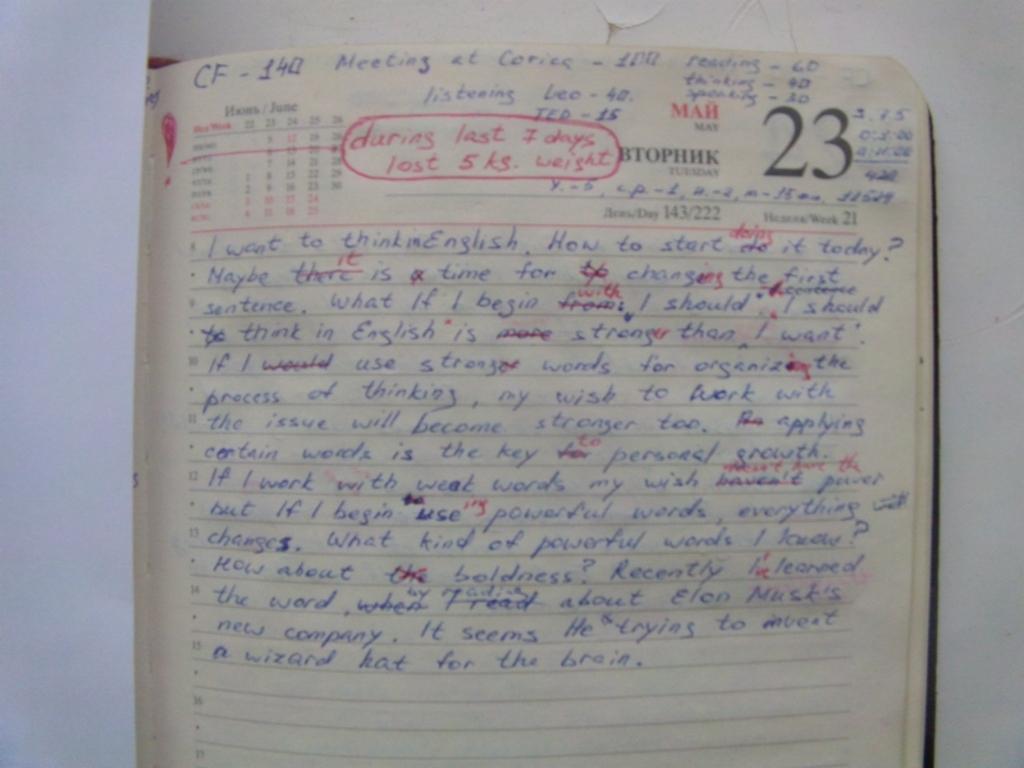 CF - 140 Meeting at Corica - 100 reading - 60
thinking - 40
speaking - 30
listening Leo - 40.
TED - 15
Июнь / June
МАЙ
MAY
23
ВТОРНИК
TUESDAY
during last 7 days
lost 5 kg. weight
День/Day 143/222 Неделя/Week 21
I want to think in English. How to start do doing it today?
Maybe there it is a time for to changing the first
sentence. What If I begin from with: "I should". "I should
to think in English" is more stronger than "I want".
If I would use stronger words for organizing the
process of thinking, my wish to work with
the issue will become stronger too. applying
certain words is the key for to personal growth.
If I work with weak words my wish haven't doesn't have the power
but If I begin to use ing powerful words, everything will
changes. What kind of powerful words I know?
How about the boldness? Recently I learned
the word, when I read by reading about Elon Musk's
new company. It seems He's trying to invent
a wizard hat for the brain.